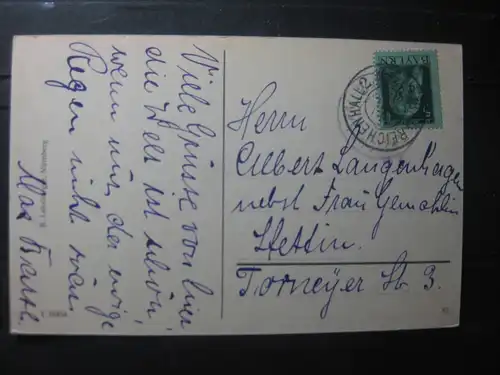 Viele Grüsse von hier
die Welt ist schön,
wenn nur der ewige
Regen nicht wär.
Max
BAYERN
REICHENHALL 2
Herrn
Albert Langenhagen
nebst Frau Gemahlin
Stettin.
Torneyer Str 3.